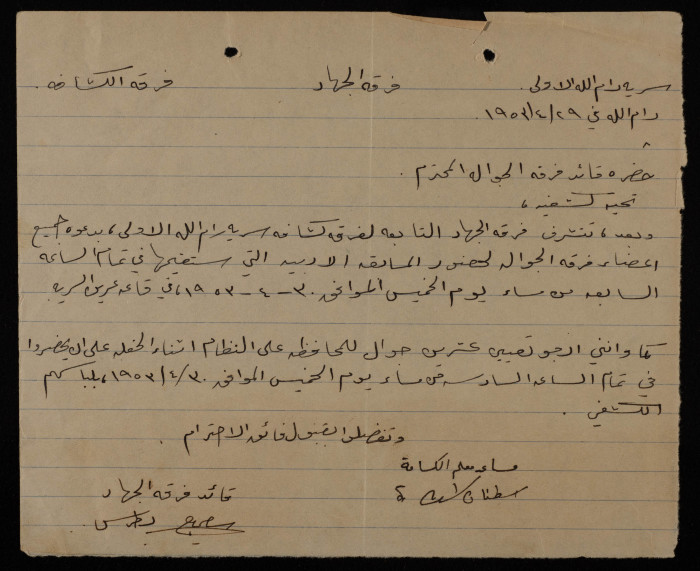 سريه رام الله الاولى. فرقه الجهاد فرقه الكشافه.
رام الله في ٢٩/٤/١٩٥٣.
حضره قائد فرقه الجوال المحترم.
تحية كشفيه،
وبعد، تتشرف فرقه الجهاد التابعه لفرقه كشافه سريه رام الله الاولى، بدعوه جميع
اعضاء فرقه الجواله لحضور المسابقه الادبيه التي ستقيمها في تمام الساعه
السابعه من مساء يوم الخميس الموافق ٣٠-٤-١٩٥٣، في قاعه عرين السريه
كما وانني ارجو تعيين عشرين جوال للمحافظه على النظام اثناء الحفله على ان يحضروا
في تمام الساعه السادسه من مساء يوم الخميس الموافق ٣٠/٤/١٩٥٣، بلباسهم
الكشفي.
وتفضلوا بقبول فائق الاحترام.
مساعد معلم الكشافة
قائد فرقه الجهاد
بطرس